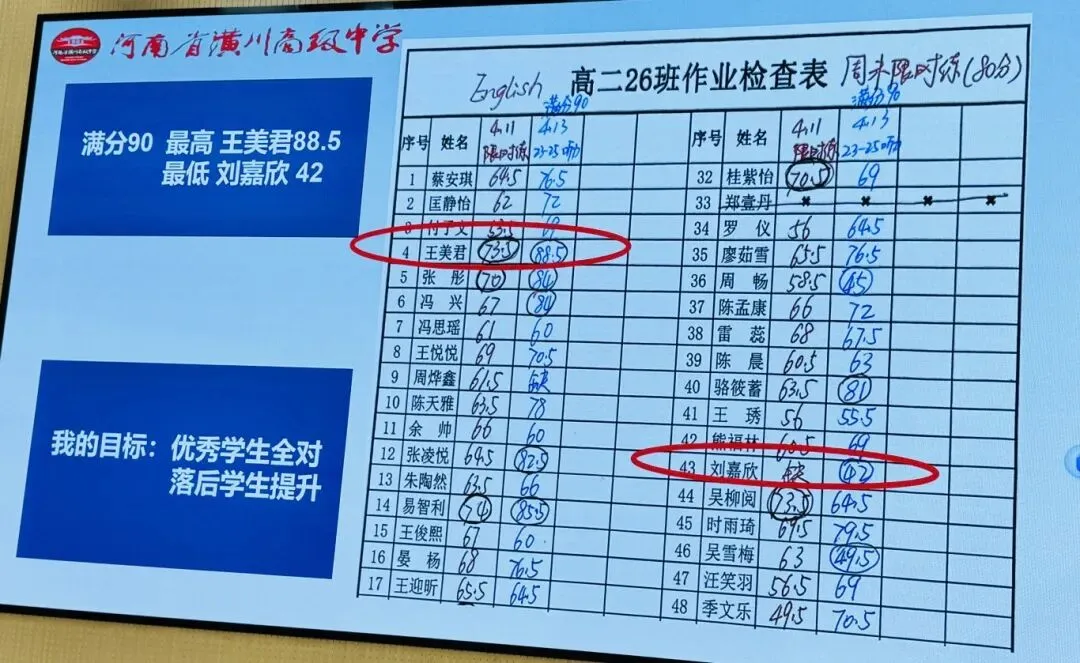 河南省潢川高级中学
满分90 最高 王美君88.5
最低 刘嘉欣 42
我的目标：优秀学生全对
落后学生提升
English 高二26班作业检查表 周末限时练(80分)
满分90 满分90
序号 姓名 4.11 限时练 4.13 23-25听力 序号 姓名 4.11 限时练 4.13 23-25听力
1 蔡安琪 64.5 76.5 32 桂紫怡 70.5 69
2 匡静怡 62 72 33 郑壹丹 × × × ×
3 付子文 53.5 69 34 罗仪 56 64.5
4 王美君 73.5 88.5 35 廖茹雪 65.5 76.5
5 张彤 70 84 36 周畅 58.5 45
6 冯兴 67 84 37 陈孟康 66 72
7 冯思瑶 61 60 38 雷蕊 68 67.5
8 王悦悦 69 70.5 39 陈晨 60.5 63
9 周烨鑫 61.5 缺 40 骆筱蓄 63.5 81
10 陈天雅 63.5 78 41 王琇 56 55.5
11 余帅 66 60 42 熊福林 60.5 69
12 张凌悦 64.5 82.5 43 刘嘉欣 缺 42
13 朱陶然 63.5 66 44 吴柳阅 73.5 64.5
14 易智利 74 85.5 45 时雨琦 69.5 79.5
15 王俊熙 67 60 46 吴雪梅 63 49.5
16 晏杨 68 76.5 47 汪笑羽 56.5 69
17 王迎昕 65.5 64.5 48 季文乐 49.5 70.5